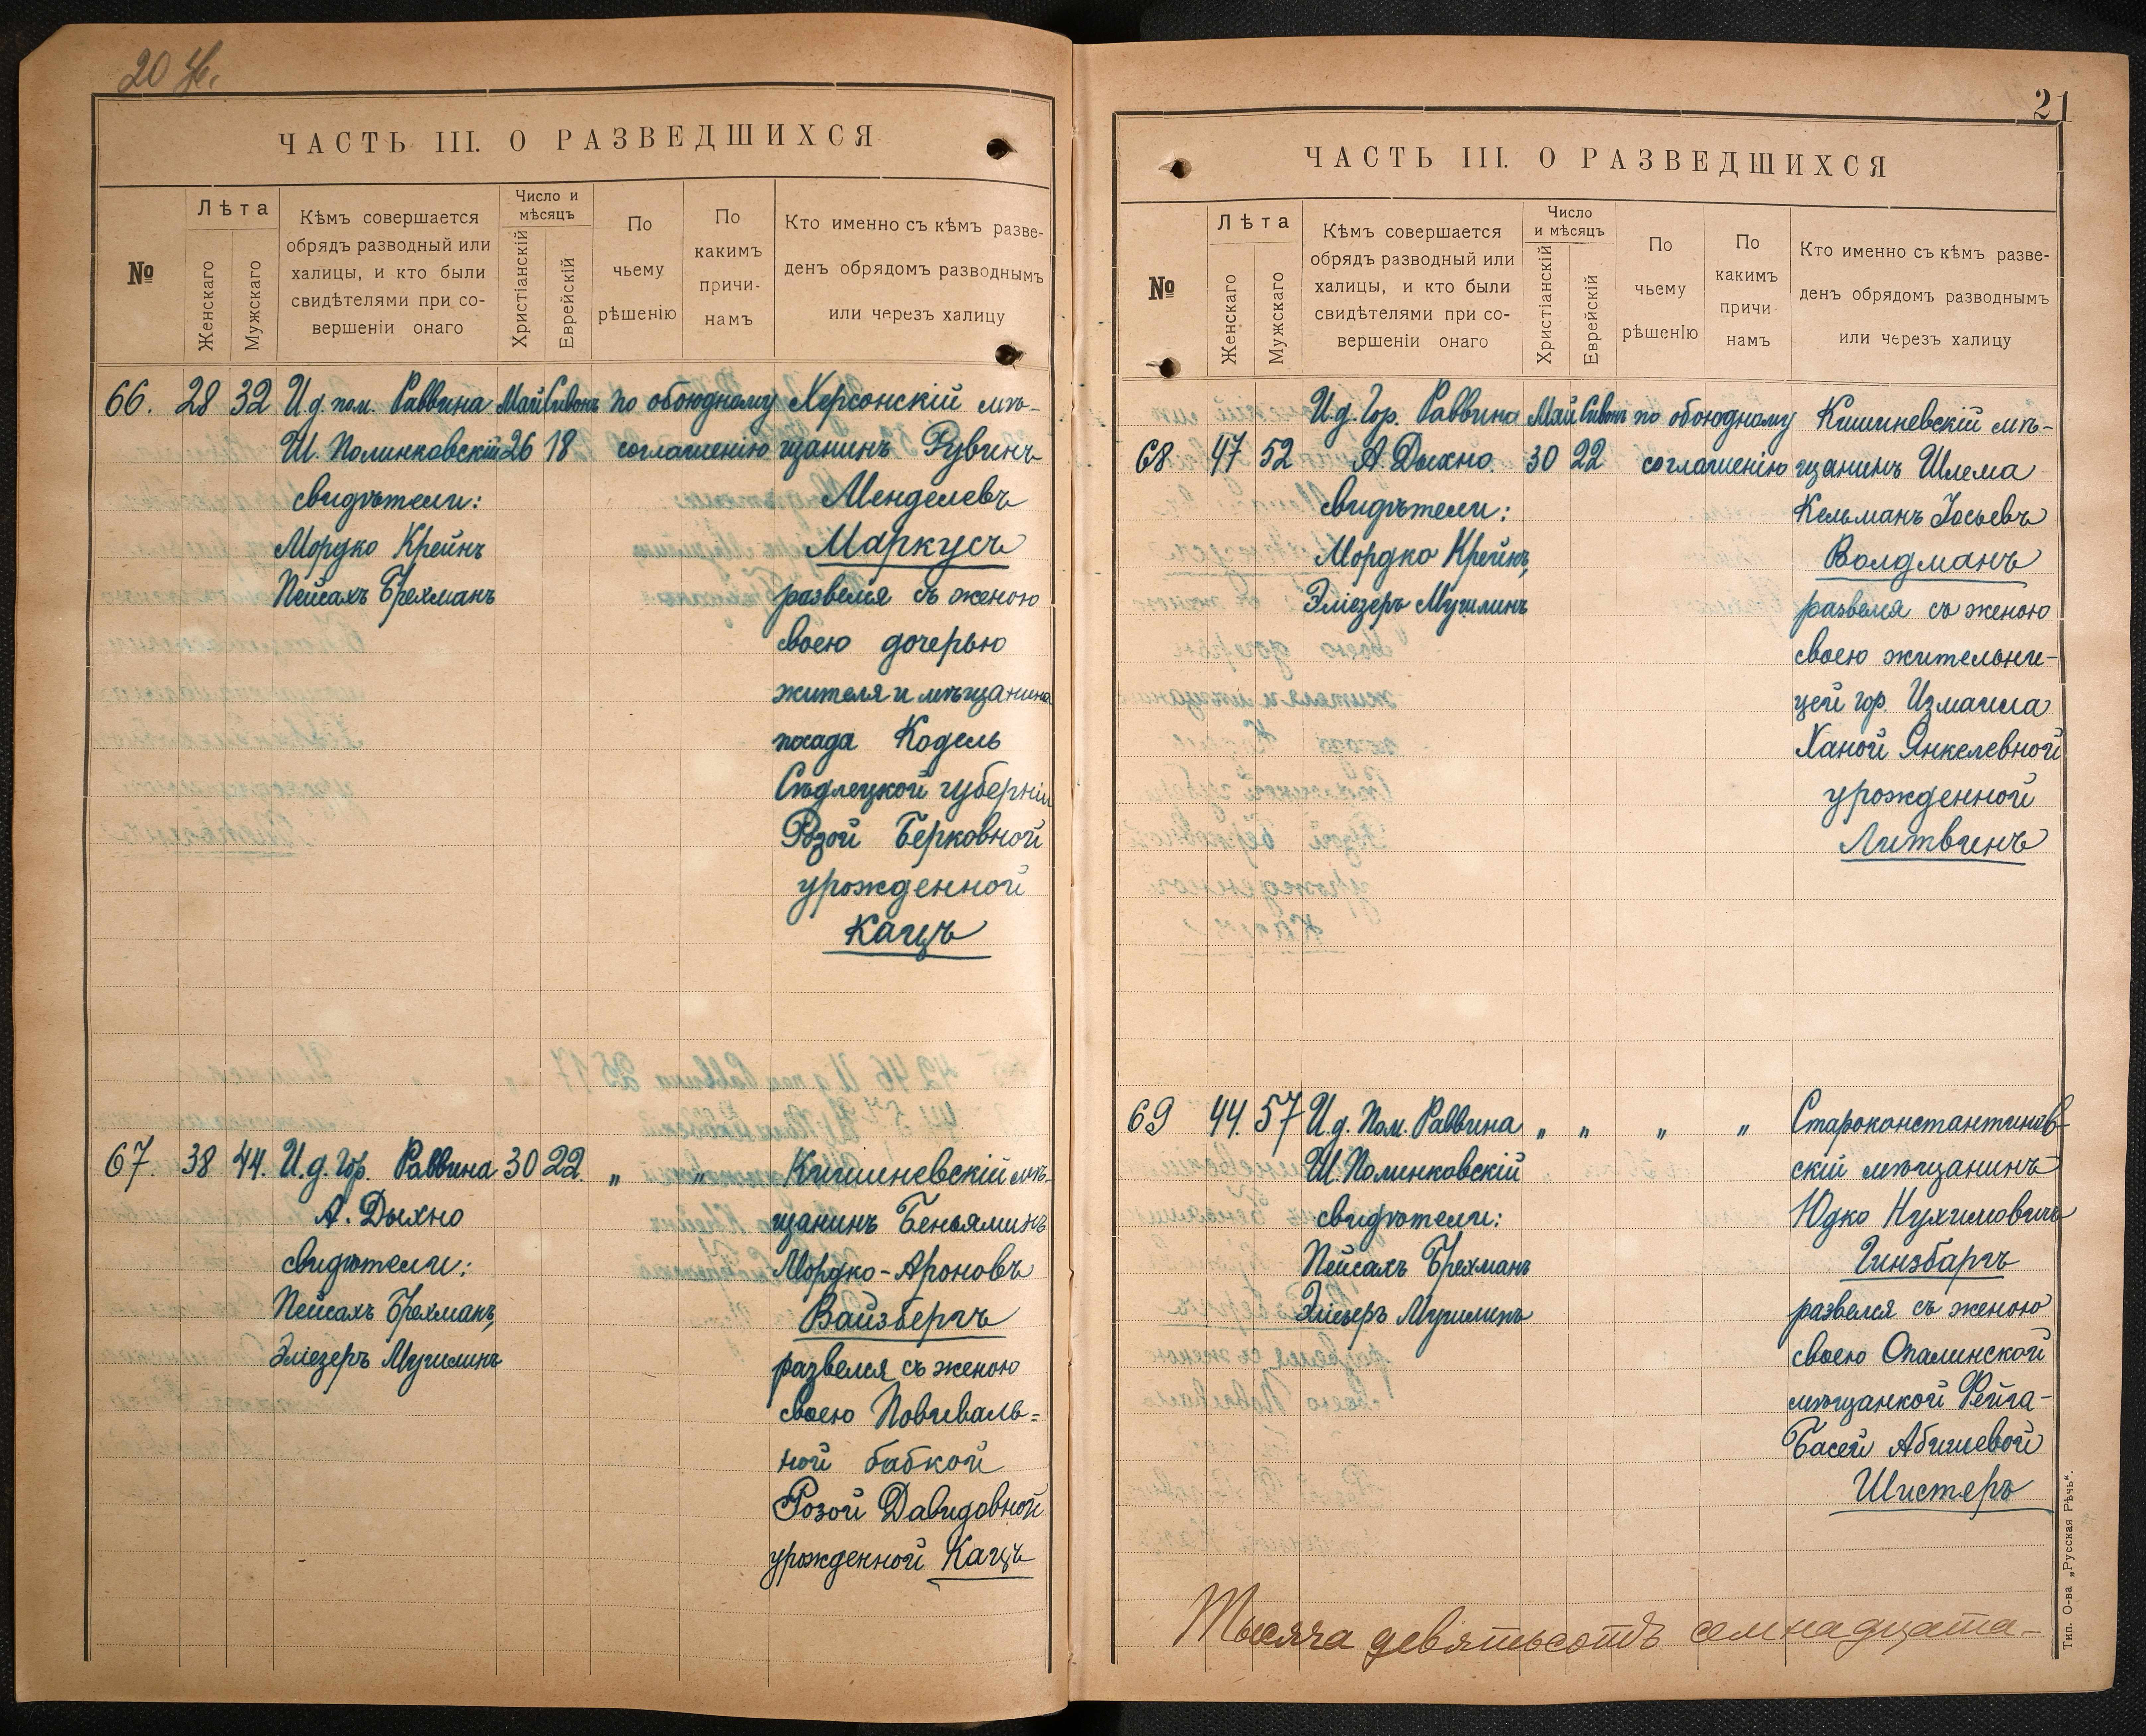 20
ЧАСТЬ III. О РАЗВЕДШИХСЯ
№
Лѣта
Женскаго
Мужскаго
Кѣмъ совершается
обрядъ разводный или
халицы, и кто были
свидѣтелями при со-
вершеніи онаго
Число и
мѣсяцъ
Христіанскій
Еврейскій
По
чьему
рѣшенію
По
какимъ
причи-
намъ
Кто именно съ кѣмъ разве-
денъ обрядомъ разводнымъ
или черезъ халицу
66. 28 32 И.д. пом. Раввина Май Сивонъ по обоюдному Херсонскій мѣ-
Ш. Полинковскій 26 18 соглашенію щанинъ Рувинъ
свидѣтели: Менделевъ
Мордко Крейнъ Маркусъ
Пейсахъ Брехманъ развелся съ женою
своею дочерью
жителя и мѣщанина
посада Кодель
Сѣдлецкой губерніи
Розой Берковной
урожденной
Кацъ
67. 38 44. И.д. Гор. Раввина 30 22 „ „ Кишиневскій мѣ-
А. Дыхно щанинъ Беньяминъ
свидѣтели: Мордко-Ароновъ
Пейсахъ Брехманъ, Вайзбергъ
Эліезеръ Мучилинъ развелся съ женою
своею Повиваль=
ной бабкой
Розой Давидовной
урожденной Кацъ
21
ЧАСТЬ III. О РАЗВЕДШИХСЯ
№
Лѣта
Женскаго
Мужскаго
Кѣмъ совершается
обрядъ разводный или
халицы, и кто были
свидѣтелями при со-
вершеніи онаго
Число
и мѣсяцъ
Христіанскій
Еврейскій
По
чьему
рѣшенІю
По
какимъ
причи-
намъ
Кто именно съ кѣмъ разве-
денъ обрядомъ разводнымъ
или черезъ халицу
И.д. Гор. Раввина Май Сивонъ по обоюдному Кишиневскій мѣ-
68 47 52 А. Дыхно 30 22 соглашенію щанинъ Шлема
свидѣтели: Кельманъ Іосьевъ
Мордко Крейнъ, Волдманъ
Эліезеръ Мучилинъ развелся съ женою
своею жительни-
цей гор. Измаила
Ханой Янкелевной
урожденной
Литвинъ
69 44. 57 И.д. Пом. Раввина „ „ „ „ Староконстантинов-
Ш. Полинковскій скій мѣщанинъ
свидѣтели: Юдко Нухимовичъ
Пейсахъ Брехманъ Гинзбаргъ
Эліезеръ Мучилинъ развелся съ женою
своею Опалинской
мѣщанкой Рейза-
Басей Абишевой
Шистеръ
Тысяча девятьсотъ семнадцата-
Тип. О-ва „Русская Рѣчь“.